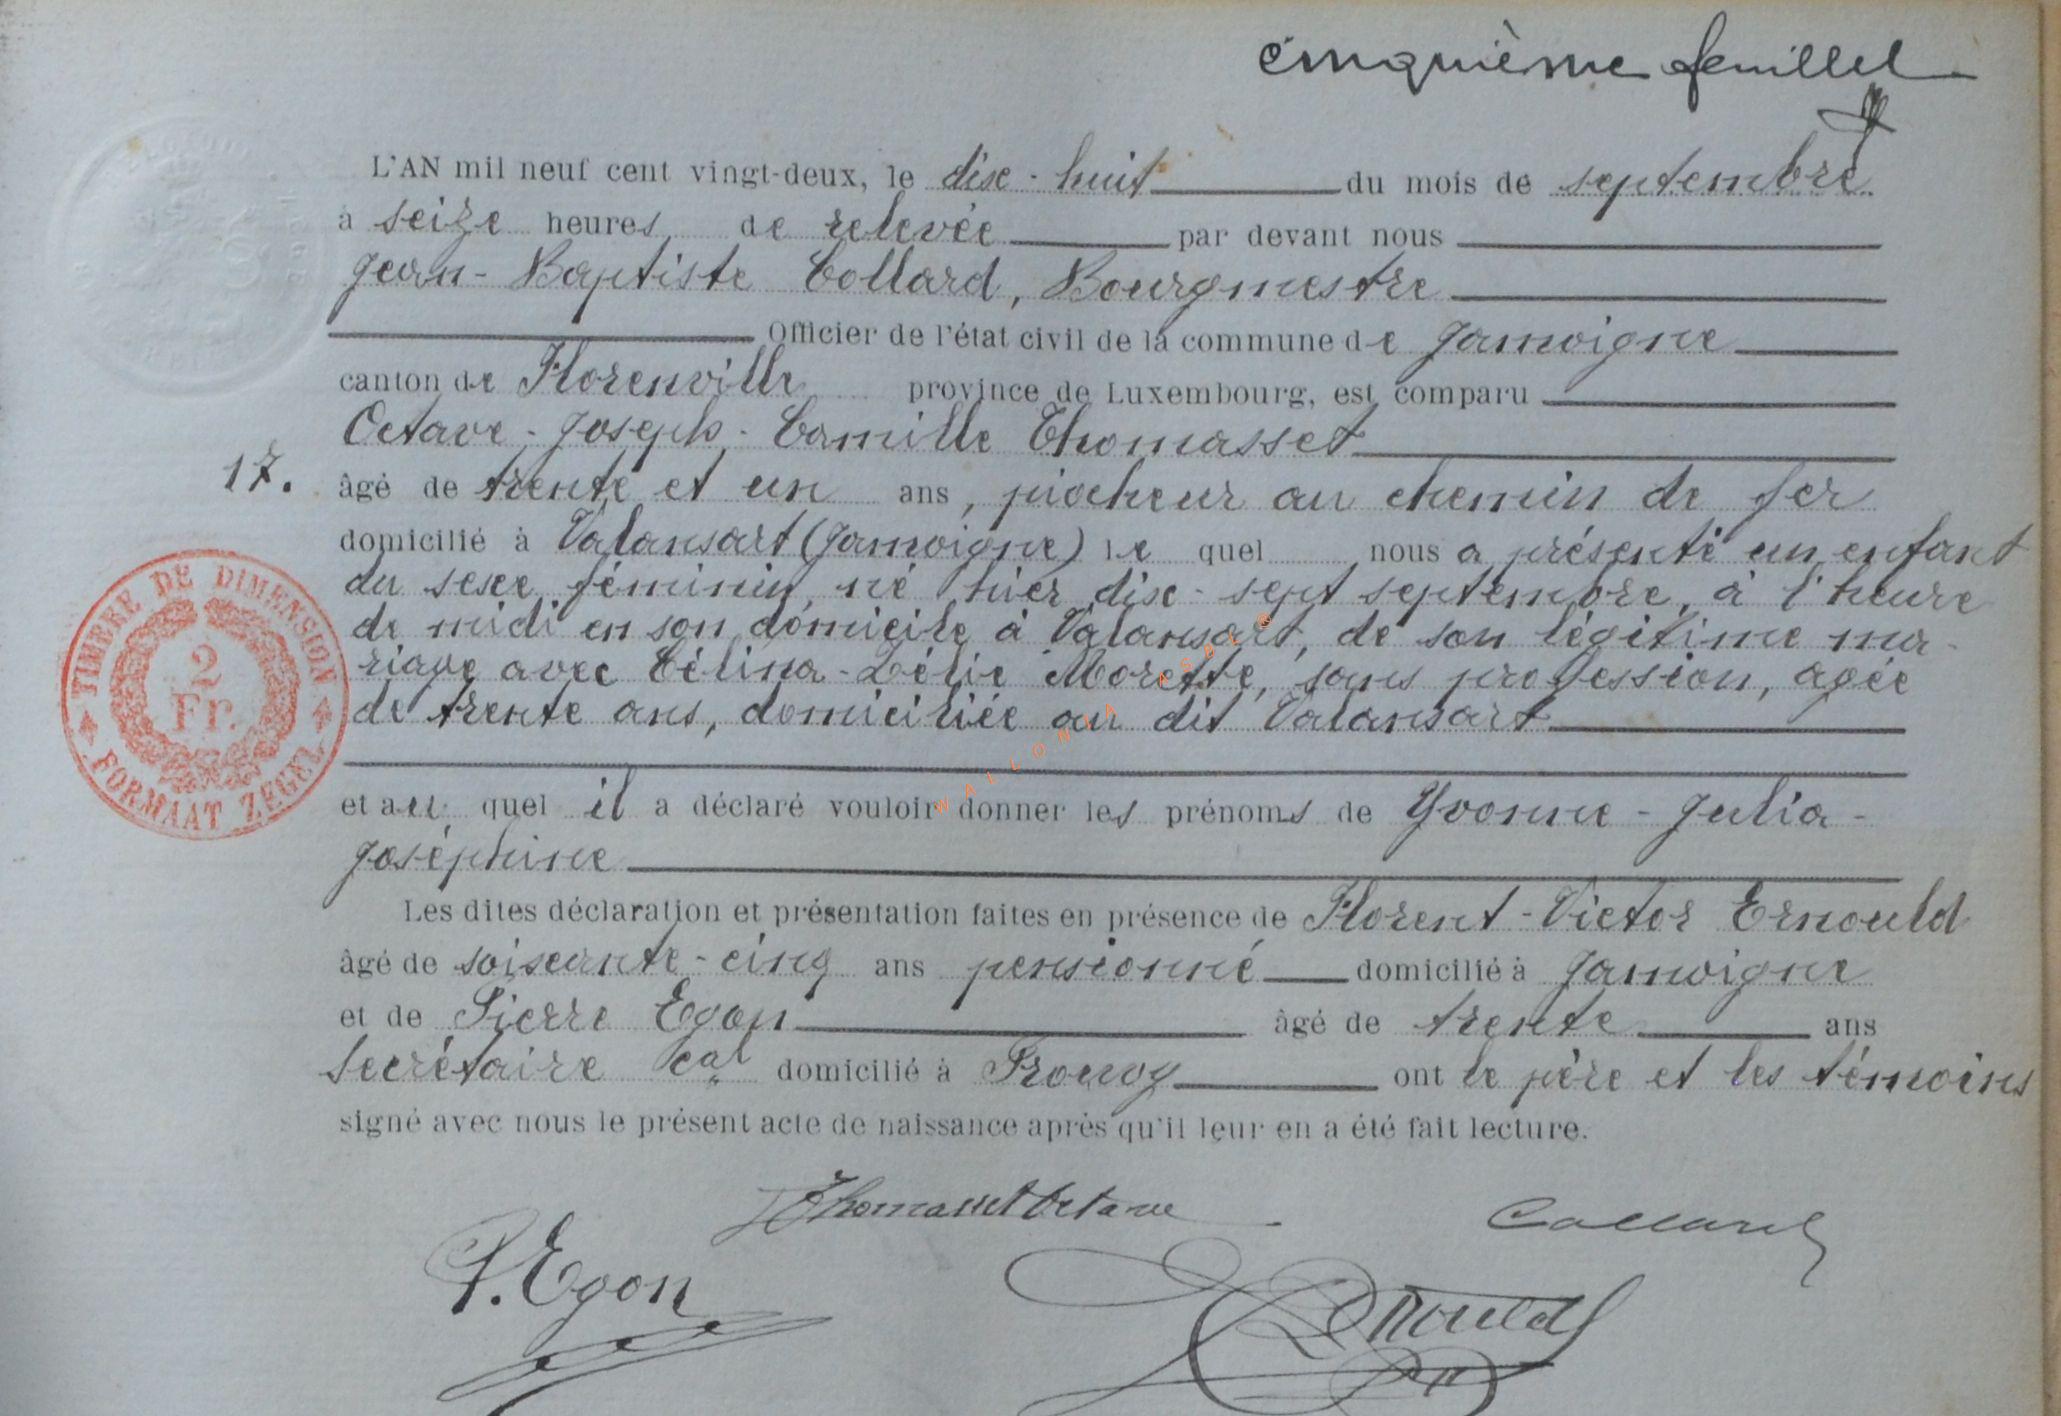 cinquième feuillet
L'AN mil neuf cent vingt-deux, le dix-huit du mois de septembre
à seize heures de relevée par devant nous
Jean-Baptiste Collard, Bourgmestre
Officier de l'état civil de la commune de Jamoigne
canton de Florenville province de Luxembourg, est comparu
Octave-Joseph-Camille Thomasset
17. âgé de trente et un ans, piocheur au chemin de fer
domicilié à Valansart (Jamoigne) le quel nous a présenté un enfant
du sexe féminin, né hier dix-sept septembre, à l'heure
de midi en son domicile à Valansart, de son légitime ma-
riage avec Célina-Zélie Morette, sans profession, agée
de trente ans, domiciliée au dit Valansart
et au quel il a déclaré vouloir donner les prénoms de Yvonne-Julia-
Joséphine
Les dites déclaration et présentation faites en présence de Florent-Victor Ernould
âgé de soixante-cinq ans pensionné domicilié à Jamoigne
et de Pierre Egon âgé de trente ans
secrétaire cal domicilié à Prouvy ont le père et les témoins
signé avec nous le présent acte de naissance après qu'il leur en a été fait lecture.
Thomasset Octave
Collard
P. Egon
Ernould
TIMBRE DE DIMENSION
2
Fr.
FORMAAT ZEGEL
WALLONIA ASBL ®